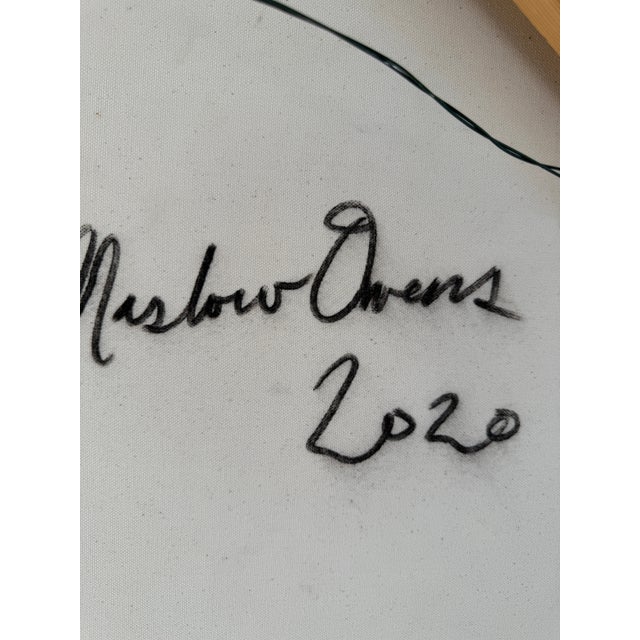 Marlow Owens
2020